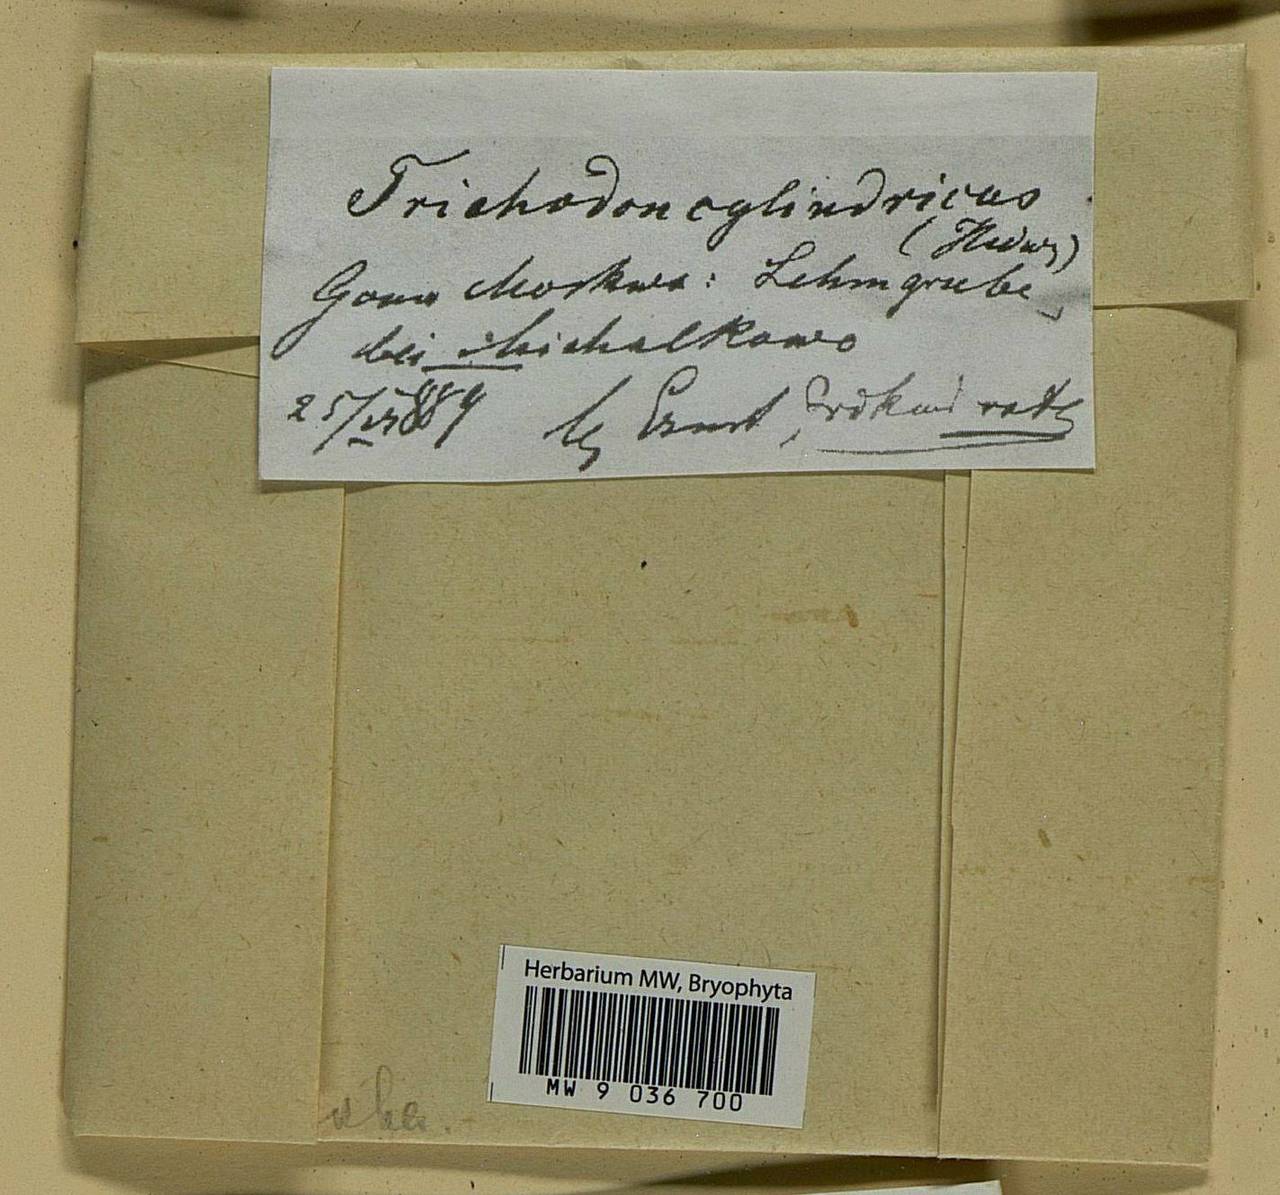 Trichodon cylindricus
(Hedw)
Gouv Moskwa: Lehmgrube
bei Michalkowo
25/VI 1889 lg Ernst
Herbarium MW, Bryophyta
MW 9 036 700